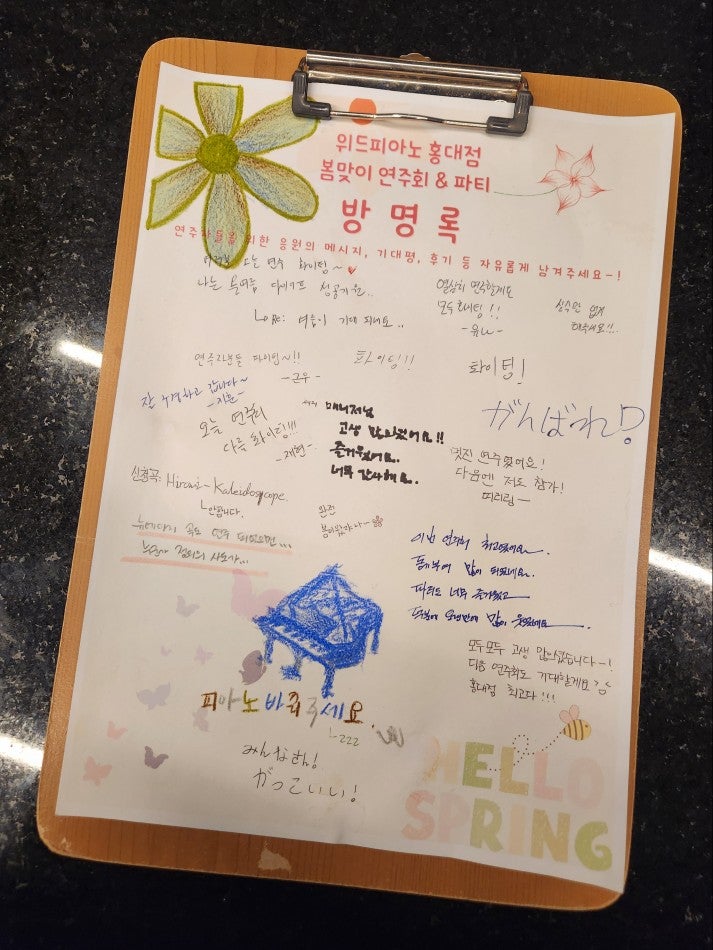 위드피아노 홍대점
봄맞이 연주회 & 파티
방 명 록
연주자들을 위한 응원의 메시지, 기대평, 후기 등 자유롭게 남겨주세요~!
오늘 연주 화이팅~
나는 봄여름 다이어트 성공기원..
여름이 기대 되네요..
열심히 연주할게요
모두 화이팅!!
실수만 없게
해주세요!!..
연주자분들 화이팅~!!
-근우-
화이팅!!
화이팅!
잘 구경하고 갑니다~
-지훈-
오늘 연주회
다들 화이팅!!!
-재현-
매니저님
고생 많으셨어요!!
즐거웠어요.
너무 감사해요.
がんばれ!?
멋진 연주였어요!
다음엔 저도 참가!
띠리링~
신청곡: Hiromi - Kaleidoscope
완전
봄이왔구나~
이번 연주회 최고였어요~
동기부여 많이 되었네요.
파티도 너무 즐거웠고
덕분에 오랜만에 많이 웃었네요
모두모두 고생 많으셨습니다~!
다음 연주회도 기대할게요
홍대점 최고다!!!
피아노 바꿔주세요.
ㄴzzz
みんなさん!
がっこいい!
HELLO
SPRING